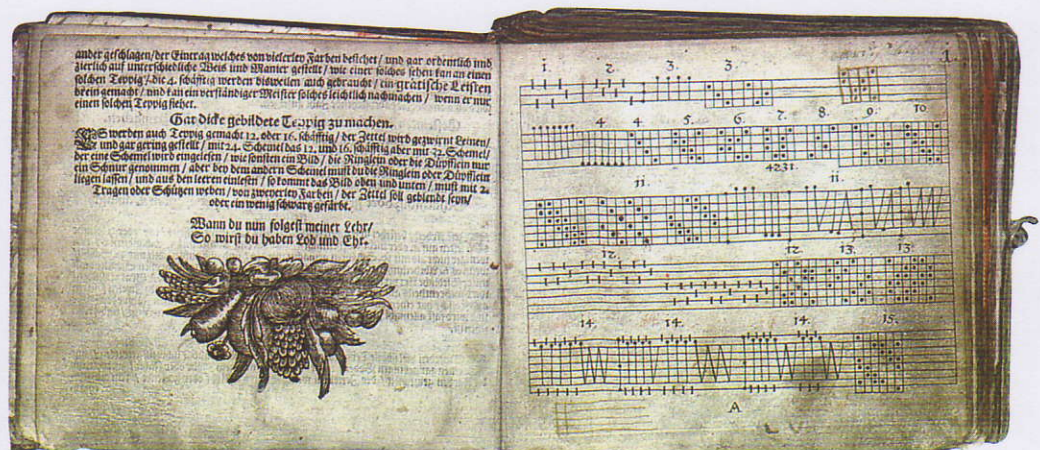 ander geschlagen/der Eintrag welches von vielerley Farben bestehet/ und gar ordentlich und
zierlich auf unterschiedliche Weis und Manier gestellt/ wie einer solches sehen kan an einen
solchen Teppig/ die 4. schäfftig werden bisweilen auch gebraucht/ ein grätische Leisten
drein gemacht/ und kan ein verständiger Meister solches leichtlich nachmachen/ wenn er nur
einen solchen Teppig siehet.
Gar dicke gebildete Teppig zu machen.
ES werden auch Teppig gemacht 12. oder 16. schäfftig/ der Zettel wird gezwirnt Leinen/
und gar gering gestellt/ mit 24. Schemel das 12. und 16. schäfftig aber mit 32. Schemel/
der eine Schemel wird eingelesen/ wie sonsten ein Bild/ die Ringlein oder die Düpfflein nur
ein Schnur genommen/ aber bey dem andern Schemel must du die Ringlein oder Düpfflein
liegen lassen/ und aus den leeren einlesen/ so kommt das Bild oben und unten/ must mit 2.
Tragen oder Schützen weben/ von zweyerley Farben/ der Zettel soll geblendt seyn/
oder ein wenig schwartz gefärbt.
Wann du nun folgest meiner Lehr/
So wirst du haben Lob und Ehr.
1.
1. 2. 3. 3.
4 4. 5. 6. 7. 8. 9. 10
4231.
11. 11.
12. 12. 13. 13.
14. 14. 14. 15.
A